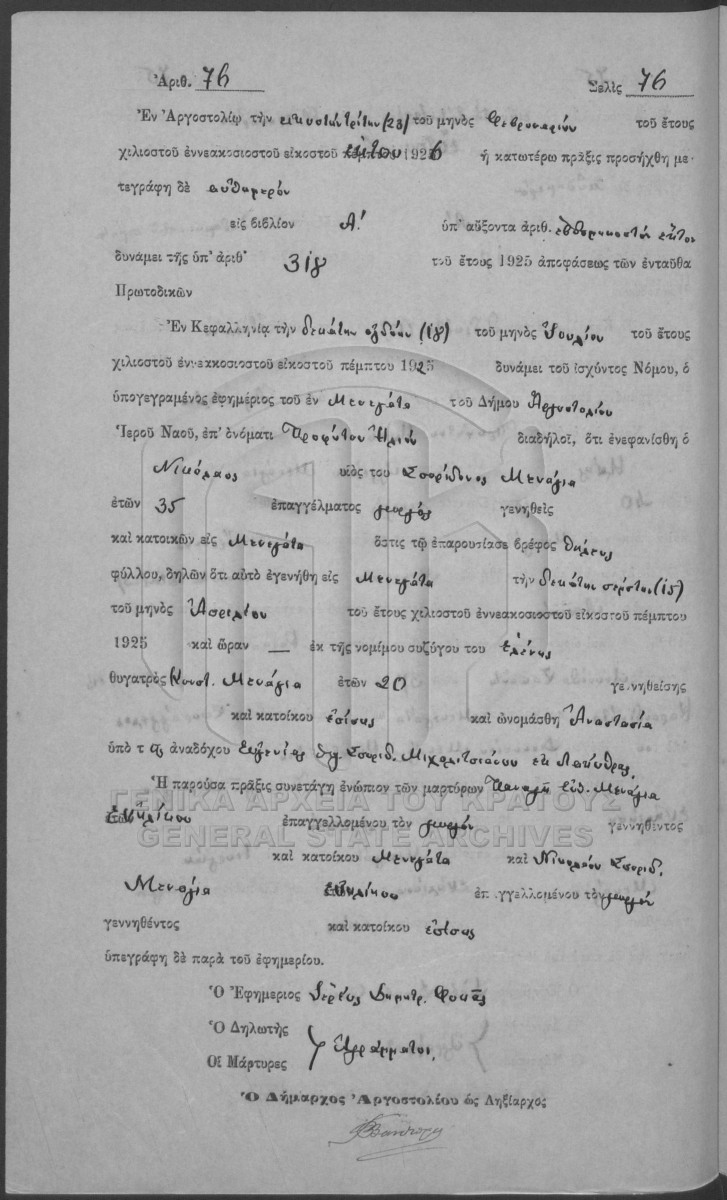 Ἀριθ. 76 Σελὶς 76
Ἐν Ἀργοστολίῳ τὴν εἰκοστὴν τρίτην (23) τοῦ μηνὸς Φεβρουαρίου τοῦ ἔτους
χιλιοστοῦ ἐννεακοσιοστοῦ εἰκοστοῦ ἕκτου 1926 ἡ κατωτέρω πρᾶξις προσήχθη με-
τεγράφη δὲ αὐθημερόν
εἰς βιβλίον Α΄ ὑπ' αὔξοντα ἀριθ. ἑβδομηκοστὸν ἕκτον
δυνάμει τῆς ὑπ' ἀριθ' 318 τοῦ ἔτους 1925 ἀποφάσεως τῶν ἐνταῦθα
Πρωτοδικῶν
Ἐν Κεφαλληνίᾳ τὴν δεκάτην ὀγδόην (18) τοῦ μηνὸς Ἰουλίου τοῦ ἔτους
χιλιοστοῦ ἐννεακοσιοστοῦ εἰκοστοῦ πέμπτου 1925 δυνάμει τοῦ ἰσχύντος Νόμου, ὁ
ὑπογεγραμένος ἐφημέριος τοῦ ἐν Μενεγάτα τοῦ Δήμου Ἀργοστολίου
Ἱεροῦ Ναοῦ, ἐπ' ὀνόματι Προφήτου Ἠλιού διαδηλοῖ, ὅτι ἐνεφανίσθη ὁ
Νικόλαος υἱὸς του Σπυρίδωνος Μενάγια
ἐτῶν 35 ἐπαγγέλματος γεωργὸς γενηθεὶς
καὶ κατοικῶν εἰς Μενεγάτα ὅστις τῷ ἐπαρουσίασε βρέφος θήλεος
φύλλου, δηλῶν ὅτι αὐτὸ ἐγενήθη εἰς Μενεγάτα τὴν δεκάτην πέμπτην (15)
τοῦ μηνὸς Ἀπριλίου τοῦ ἔτους χιλιοστοῦ ἐννεακοσιοστοῦ εἰκοστοῦ πέμπτου
1925 καὶ ὥραν — ἐκ τῆς νομίμου συζύγου του Ἑλένης
θυγατρὸς Κωνστ. Μενάγια ἐτῶν 20 γεννηθείσης
καὶ κατοίκου ἐπίσης καὶ ὠνομάσθη Ἀναστασία
ὑπὸ τῆς ἀναδόχου Εὐγενίας θυγ. Σπυρίδ. Μιχαλιτσιάνου ἐκ
Ἡ παροῦσα πρᾶξις συνετάγη ἐνώπιον τῶν μαρτύρων Παναγῆ Μενάγια
ἐνηλίκου ἐπαγγελλομένου τὸν γεωργὸν γεννηθέντος
καὶ κατοίκου Μενεγάτα καὶ Νικολάου Σπυρίδ.
Μενάγια ἐνηλίκου ἐπαγγελλομένου τὸν γεωργὸν
γεννηθέντος καὶ κατοίκου ἐπίσης
ὑπεγράφη δὲ παρὰ τοῦ ἐφημερίου.
Ὁ Ἐφημεριος Ἱερεὺς Δημητρ. Φωκᾶς
Ὁ Δηλωτὴς
Οἱ Μάρτυρες } Ἀγράμματοι.
Ὁ Δήμαρχος Ἀργοστολίου ὡς Ληξίαρχος
ΓΕΝΙΚΑ ΑΡΧΕΙΑ ΤΟΥ ΚΡΑΤΟΥΣ
GENERAL STATE ARCHIVES